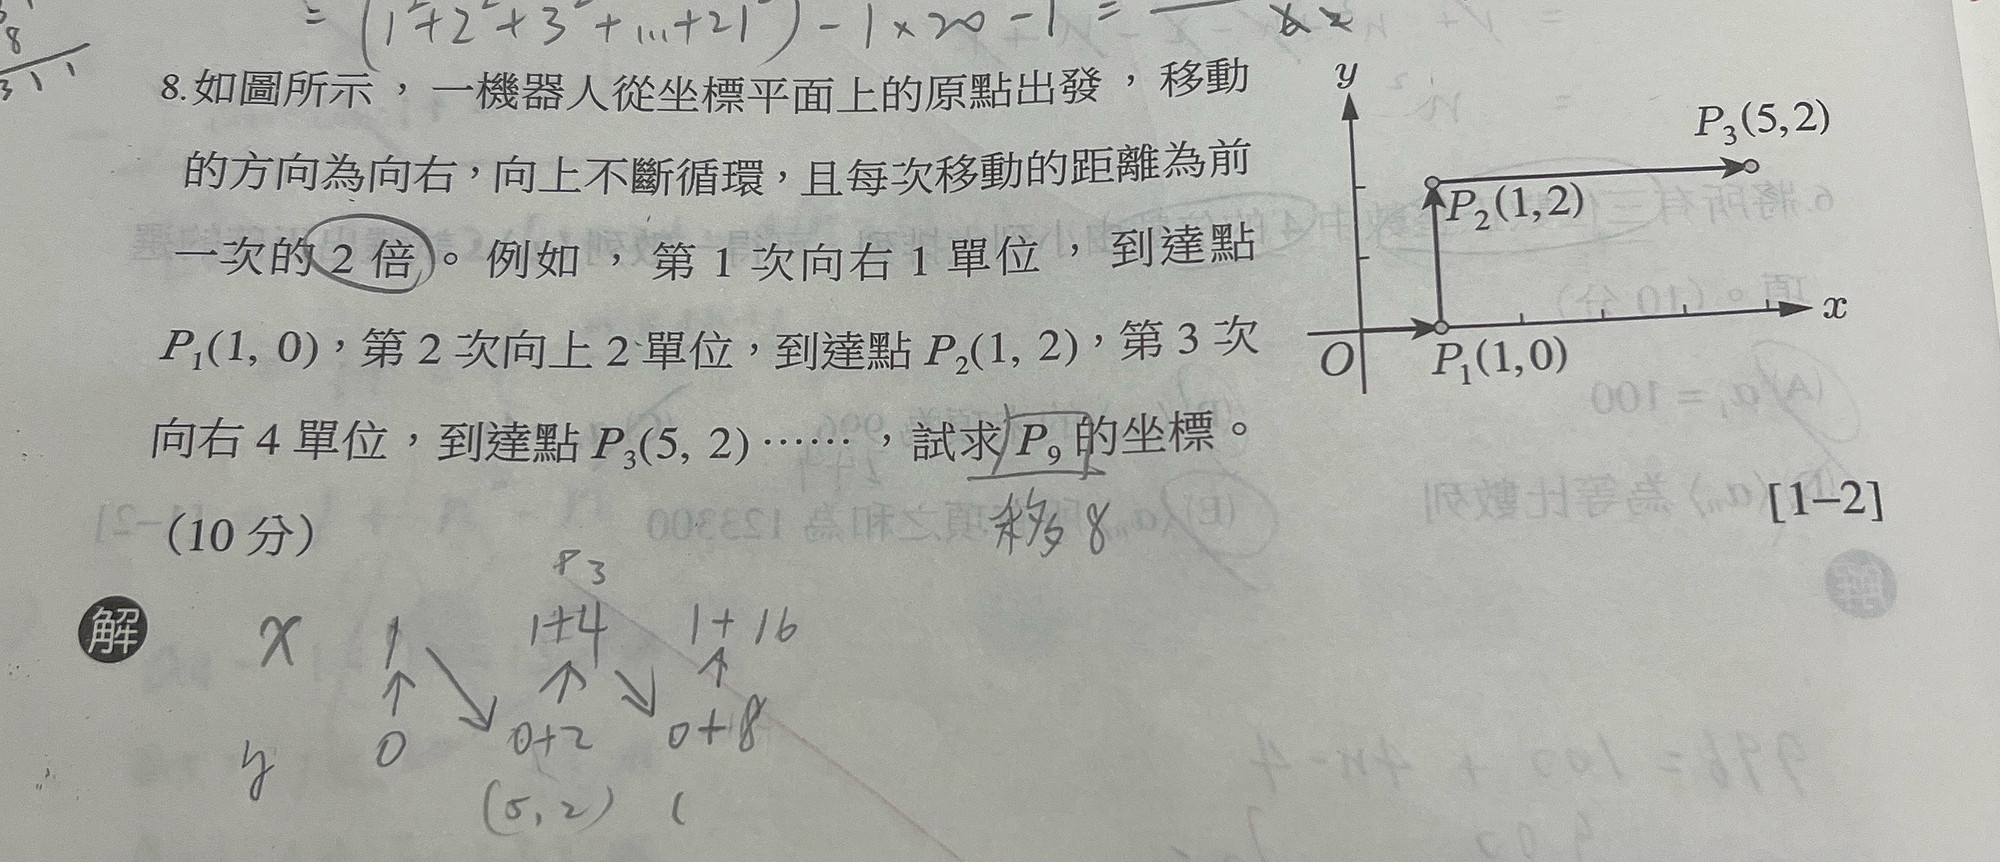 = (1²+2²+3²+...+21²) - 1×20 - 1 =
8.如圖所示，一機器人從坐標平面上的原點出發，移動
的方向為向右，向上不斷循環，且每次移動的距離為前
一次的 2 倍。例如，第 1 次向右 1 單位，到達點
P₁(1, 0)，第 2 次向上 2 單位，到達點 P₂(1, 2)，第 3 次
向右 4 單位，到達點 P₃(5, 2)……，試求 P₉ 的坐標。
（10 分）
[1–2]
y
P₃(5,2)
P₂(1,2)
x
O
P₁(1,0)
移 8
P3
解
x 1 1+4 1+16
y 0 0+2 0+8
(5,2) (